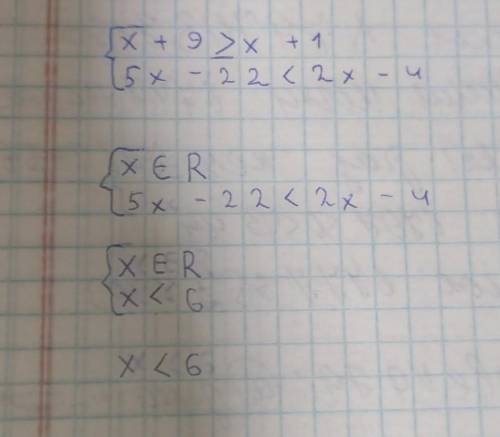 { x + 9 ≥ x + 1
5x - 22 < 2x - 4
{ x ∈ R
5x - 22 < 2x - 4
{ x ∈ R
x < 6
x < 6